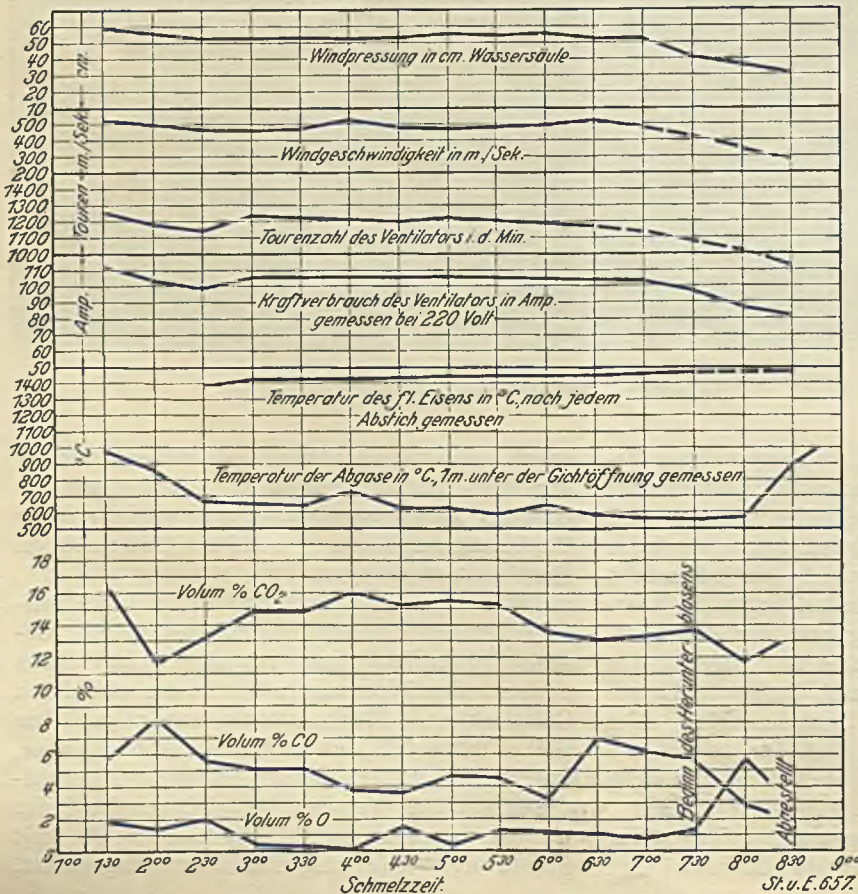 60
50
40
30
20
10
500
400
300
200
1400
1300
1200
1100
1000
110
100
90
80
60
50
1400
1300
1200
1100
1000
900
800
700
600
500
18
16
14
12
10
8
6
4
2
0
cm.
m./Sek.
Touren
Amp.
°C
%
Windpressung in cm. Wassersäule
Windgeschwindigkeit in m./Sek.
Tourenzahl des Ventilators i. d. Min.
Kraftverbrauch des Ventilators in Amp.
gemessen bei 220 Volt
Temperatur des fl. Eisens in °C, nach jedem
Abstich gemessen
Temperatur der Abgase in °C., 1m. unter der Gichtöffnung gemessen
Volum % CO₂
Volum % CO
Volum % O
Beginn des Herunterblasens
Abgestellt
1⁰⁰ 1³⁰ 2⁰⁰ 2³⁰ 3⁰⁰ 3³⁰ 4⁰⁰ 4³⁰ 5⁰⁰ 5³⁰ 6⁰⁰ 6³⁰ 7⁰⁰ 7³⁰ 8⁰⁰ 8³⁰ 9⁰⁰
Schmelzzeit.
St. u. E. 657.